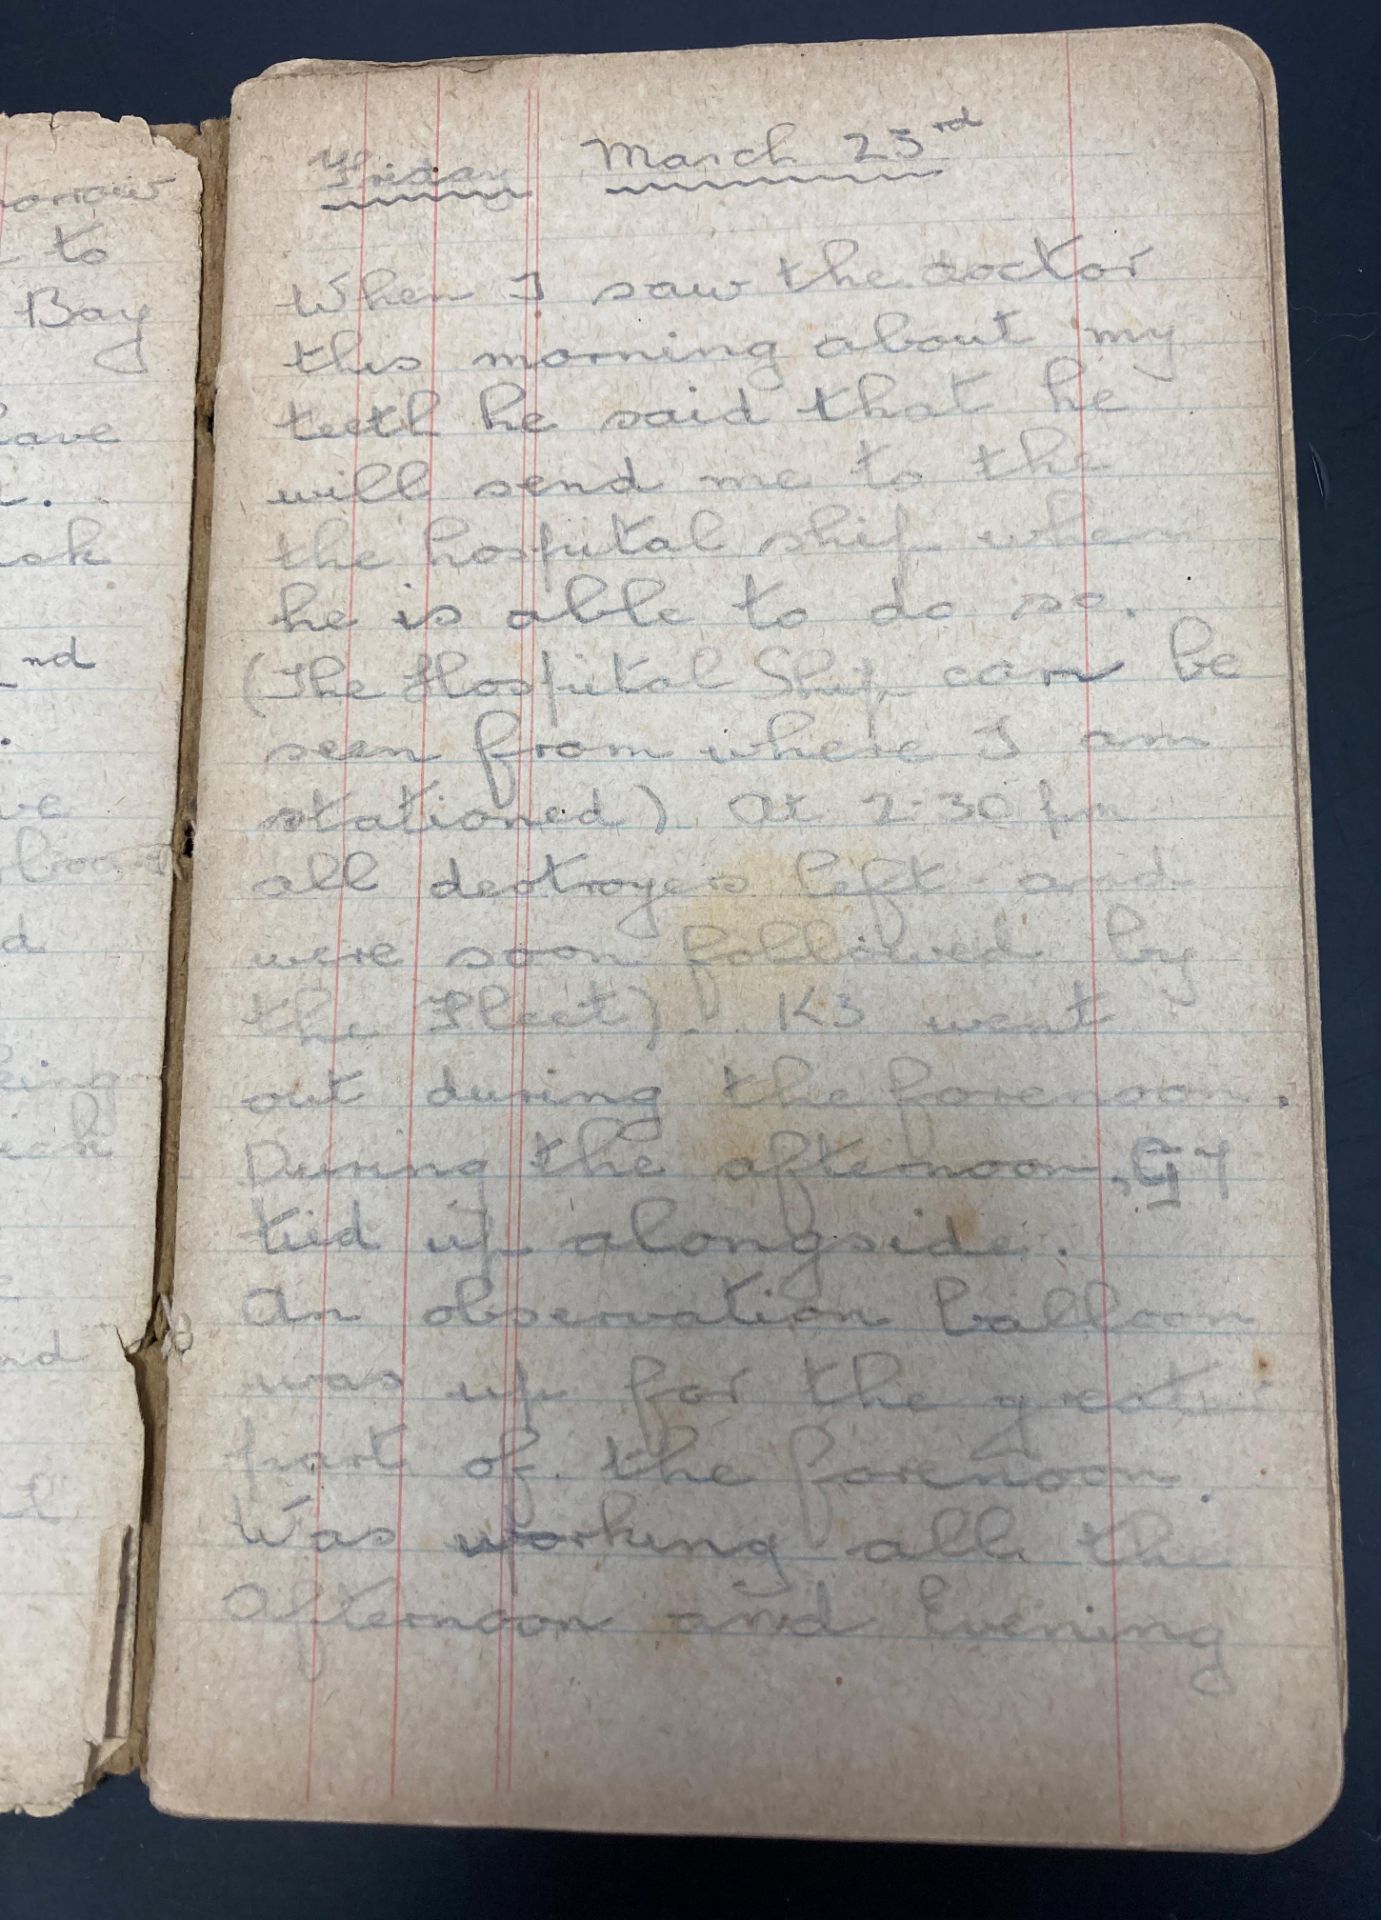 to
Bay
nd
Friday March 23rd
When I saw the doctor
this morning about my
teeth he said that he
will send me to the
the hospital ship when
he is able to do so.
(The Hospital Ship can be
seen from where I am
stationed). At 2.30 pm
all destroyers left and
were soon followed by
the Fleet). K3 went
out during the forenoon.
During the afternoon, G7
tied up alongside.
An observation balloon
was up for the greater
part of the forenoon.
Was working all the
Afternoon and Evening